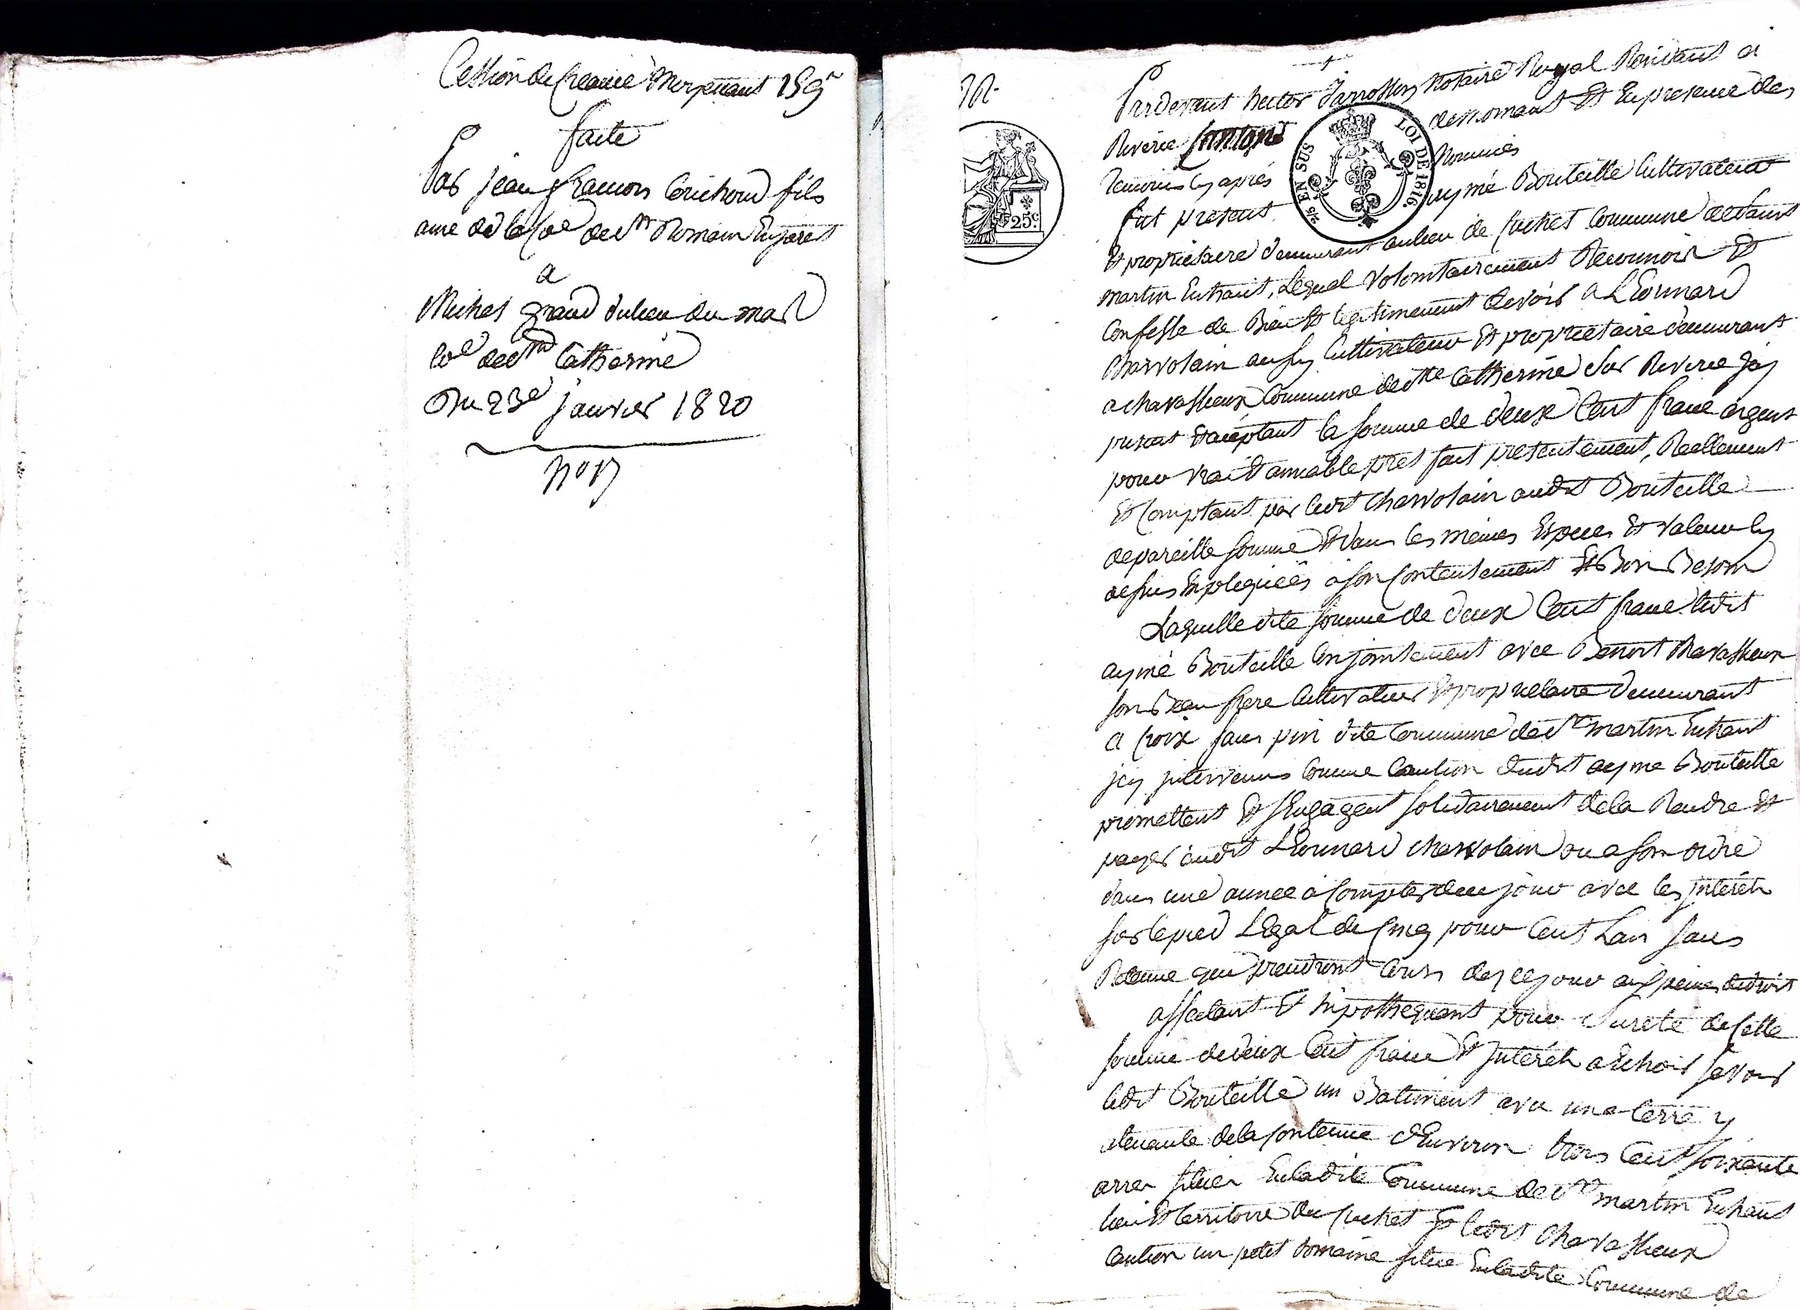 Cession de Creance Moyenant 159 f
faite
Par jean francois Couchoud fils
ainé de la Coe de St Romain En jarest
a
Michel grand du lieu du mas
Coe de Ste Catherine
Du 23e janvier 1820
no 17
Pardevant hector Jarrosson Notaire Royal Residant a
Riverie Canton de mornant Et En presence des
Temoins Cy après Nommés
fut present aymé Bouteille Cultivateur
Et proprietaire demeurant au lieu de Commune de Saint
martin Enhaut, Lequel Volontairement Reconnoit Et
Confesse de Bien Et legitimement devoir a Léonnard
Charvolain aussy Cultivateur Et proprietaire demeurant
a chavassieux Commune de Ste Catherine sur Riverie jcy
present Et acceptant la somme de deux Cent franc argent
pour vrai Et amiable pret fait presentement, Reellement
Et Comptant par ledit Charvolain audit Bouteille
de pareille somme Et dans les mêmes Especes Et valeur Cy
dessus Expliquées à son Contentement Et Bon Besoin
Laquelle dite somme de deux Cent franc ledit
aymé Bouteille Conjointement avec Benoit Chavassieux
son Beau frere Cultivateur Et proprietaire demeurant
a Croix dite Commune de St martin Enhaut
jcy jntervenus Comme Caution dudit aymé Bouteille
promettent Et s'Engagent solidairement de la Rendre Et
payer audit Léonnard Charvolain ou a son ordre
dans une année à Compter de ce jour avec les jnterêts
sur le pied Légal de Cinq pour Cent L'an sans
Retenue qui prendront Cours dez ce jour aux peines de droit
affectant Et hipothequant pour Sureté de Cette
somme de deux Cent franc Et Jnterêts a Echoir savoir
ledit Bouteille un Batiment avec une terre y
attenante de la Contenue d'Environ trois Cent soixante
arres située En ladite Commune de St martin Enhaut
lieu Et territoire du Et ledit Chavassieux
Caution un petit domaine situé En ladite Commune de
25 c.
25 EN SUS
LOI DE 1816